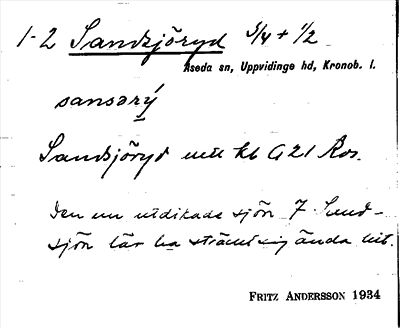 1-2 Sandsjöryd 3/4 + 1/2
Åseda sn, Uppvidinge hd, Kronob. l.
sansərý
Sandsjöryd utt kb G21 Ros.
Den nu utdikade sjön 7. Sand-
sjön lär ha sträckt sig ända hit.
FRITZ ANDERSSON 1934